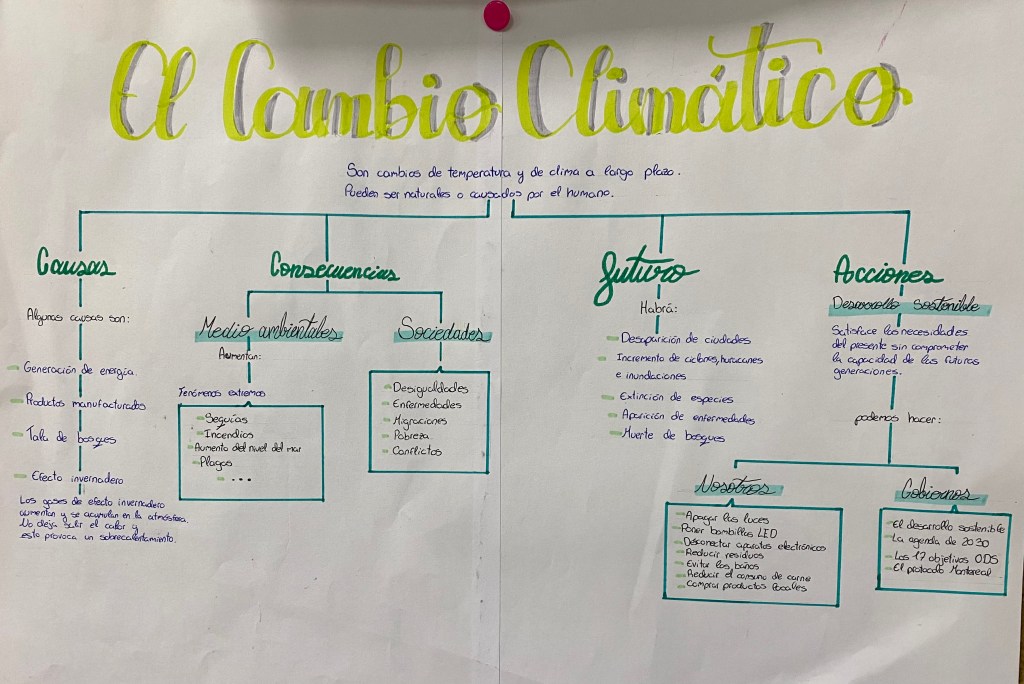 El Cambio Climático
Son cambios de temperatura y de clima a largo plazo.
Pueden ser naturales o causados por el humano.
Causas
Algunas causas son:
Generación de energía.
Productos manufacturados
Tala de bosques
Efecto invernadero
Los gases de efecto invernadero
aumentan y se acumulan en la atmósfera.
No deja salir el calor y
esto provoca un sobrecalentamiento.
Consecuencias
Medio ambientales
Aumentan:
Fenómenos extremos
Sequías
Incendios
Aumento del nivel del mar
Plagas
...
Sociedades
Desigualdades
Enfermedades
Migraciones
Pobreza
Conflictos
Futuro
Habrá:
Desaparición de ciudades
Incremento de ciclones, huracanes
e inundaciones
Extinción de especies
Aparición de enfermedades
Muerte de bosques
Acciones
Desarrollo sostenible
Satisface las necesidades
del presente sin comprometer
la capacidad de las futuras
generaciones.
podemos hacer:
Nosotros
Apagar las luces
Poner bombillas LED
Desconectar aparatos electrónicos
Reducir residuos
Evitar los baños
Reducir el consumo de carne
Comprar productos locales
Gobiernos
El desarrollo sostenible
La agenda de 2030
Los 17 objetivos ODS
El protocolo Montareal